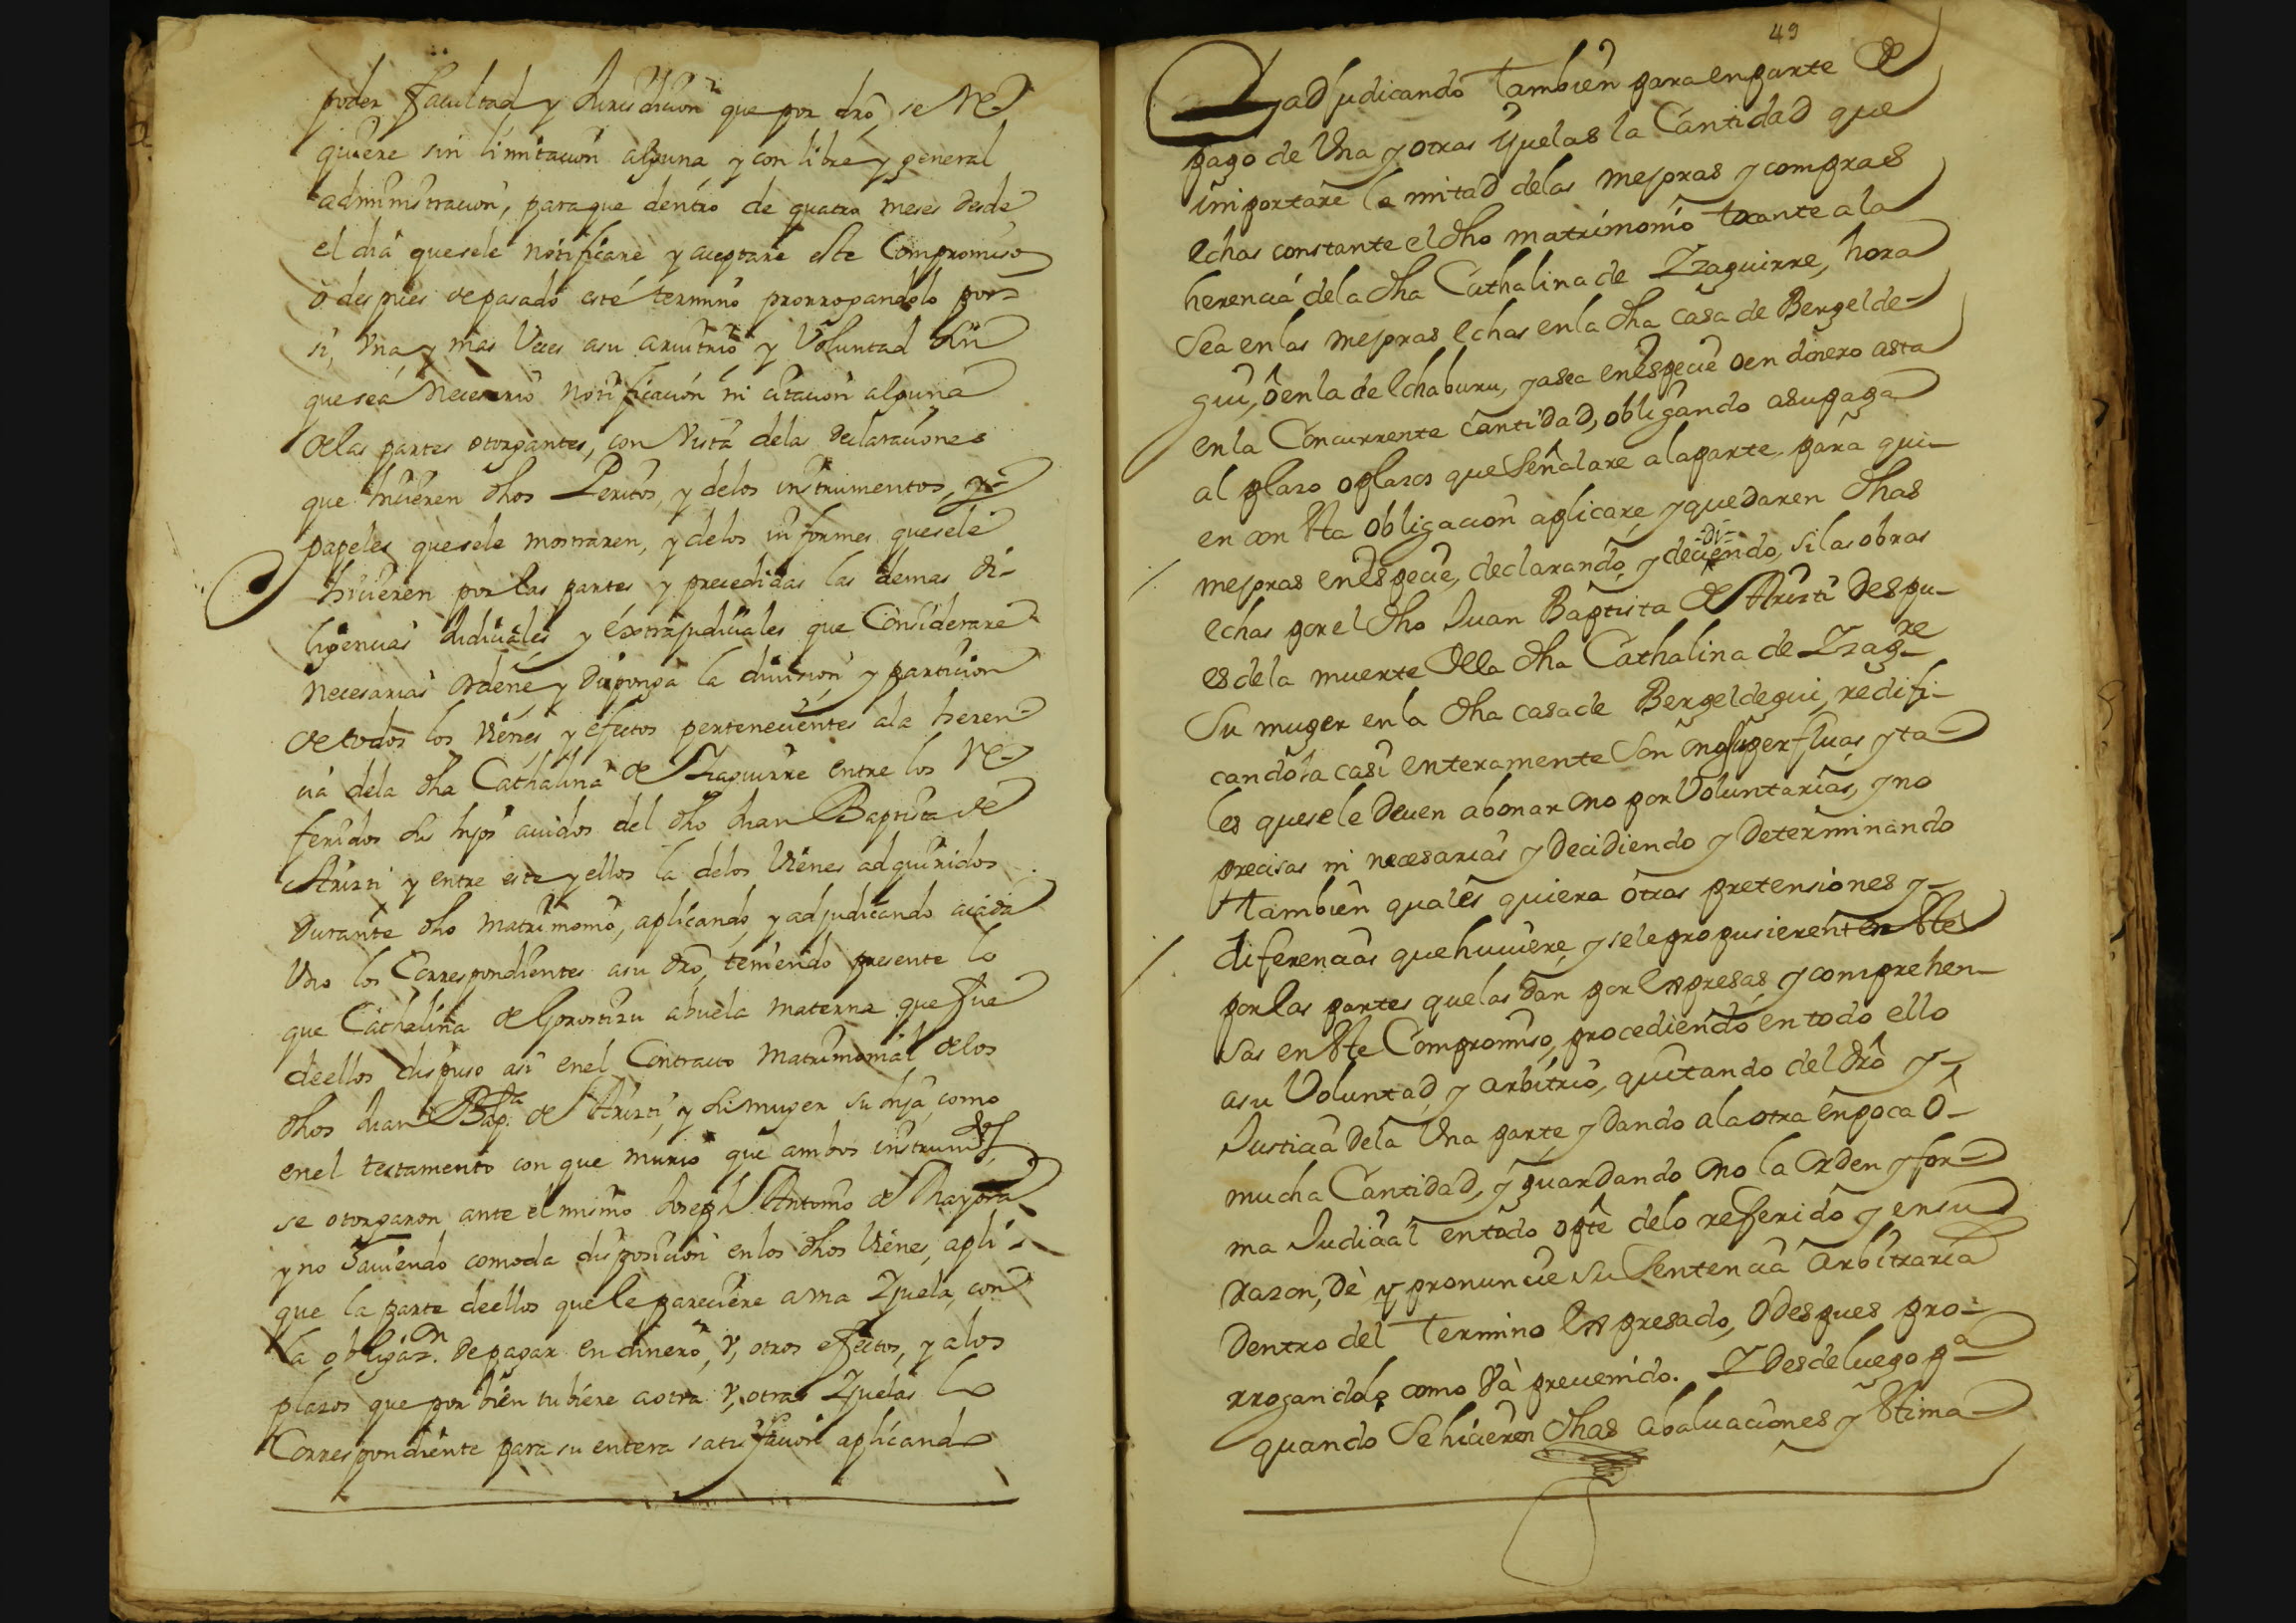 poder facultad y Jurisdicion que por dro, se Re-
quiere sin limitacion alguna y con libre y general
administracion, paraque dentro de quatro meses desde
el dia quesele notificare y aceptare este Compromiso
o despues de pasado este termino prorrogandolo por
si, Vna y mas Veces asu arvitrio y Voluntad Sin
que sea Necesario notificacion ni citacion alguna
de las partes otorgantes, con Vista delas declaraciones
que hicieren dhos Peritos, y delos instrumentos, y
papeles quesele mostraren, y delos informes quesele
hicieren por las partes y precedidas las demas di-
ligencias Judiciales y extrajudiciales que Considerare
necesarias Ordene y Disponga la division y particion
de todos los Vienes y efectos pertenecientes ala heren-
cia dela dha Cathalina de Yzaguirre entre los Re-
feridos sus hijos auidos del dho Juan Baptista de
Aristi y entre este y ellos la delos Vienes adquiridos
Durante dho matrimonio, aplicando, y adjudicando acada
Vno los Correspondientes asu dro, teniendo presente lo
que Cathalina de Gorostizu abuela materna que fue
deellos dispuso asi enel Contracto Matrimonial delos
dhos Juan Bapta de Aristi, y Su muger su hija, como
enel testamento con que murio que ambos instrumtos
se otorgaron ante el mismo Joseph Antonio de
y no haviendo comoda disposicion enlos dhos Vienes, apli-
que la parte deellos que le pareciere a vna Yjuela, con
la obligaon. de pagar en dinero, V, otros efectos, y alos
plasos que por bien tubiere aotra V, otras Yjuelas lo
Correspondiente para su entera satisfacion aplicando
49
Y adjudicando Tambien para enparte de
pago de Vna y otras Yjuelas la Cantidad que
importare la mitad delas mejoras y compras
echas constante el dho matrimonio tocante ala
herencia dela dha Cathalina de Yzaguirre, hora
Sea en las mejoras echas enla dha casa de Bergelde-
gui, ô enla de Echaburu, yasea enEspecie o en dinero asta
en la Concurrente Cantidad, obligando asupaga
al plaso o plasos que Señalare alaparte para qui-
en con Esta obligacion aplicare, y quedaren dhas
mejoras enEspecie, declarando, y deciendo, si las obras
-Di-
echas por el dho Juan Baptista de Aristi Despu-
es de la muerte della dha Cathalina de Yzagre
Su muger en la dha casa de Bergeldegui, redifi-
candola casi enteramente Son ono superfluas, y ta-
les quesele Deven abonar ono por Voluntarias, y no
precisas ni necesarias y Decidiendo y Determinando
tambien quales quiera otras pretensiones y-
diferencias que huviere, y sele propusieren
por las partes quelas Dan por Expresas y comprehen-
sas en Este Compromiso, procediendo en todo ello
asu Voluntad, y arbitrio, quitando del drô y-
Justicia Dela Vna parte, y Dando ala otra en poca ô-
mucha Cantidad, y guardando ono la orden y for-
ma Judicial entodo opte delo referido y en su
rason, Dè y pronuncie Su Sentencia Arbitraria
Dentro del Termino Expresado, o Despues pro-
rrogandolo como Và prevenido. Y Desde luego pa
quando Se hicieren dhas abaluaciones y Estima-